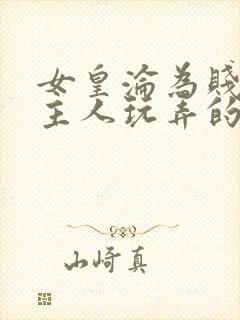 女皇淪為賤
主人玩弄的
山崎真